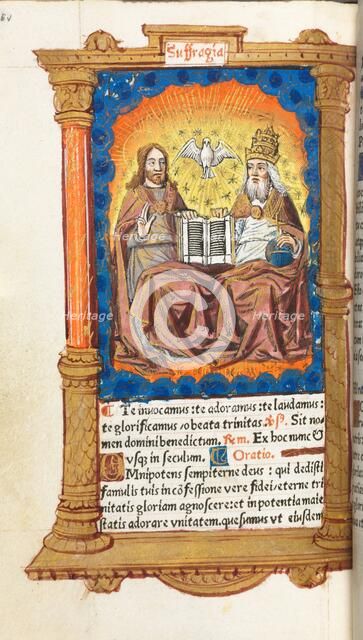 Suffragia
¶ Te invocamus: te adoramus: te laudamus:
te glorificamus o beata trinitas. ℣. Sit no
men domini benedictum. Rem. Ex hoc nunc &
vsq; in seculum. Oratio.
OMnipotens sempiterne deus: qui dedisti
famulis tuis in cõfessione vere fidei eterne tri
nitatis gloriam agnoscere: et in potentia maie
statis adorare vnitatem. quesumus vt eiusdem
Heritage
Heritage
Heritage
Heritage